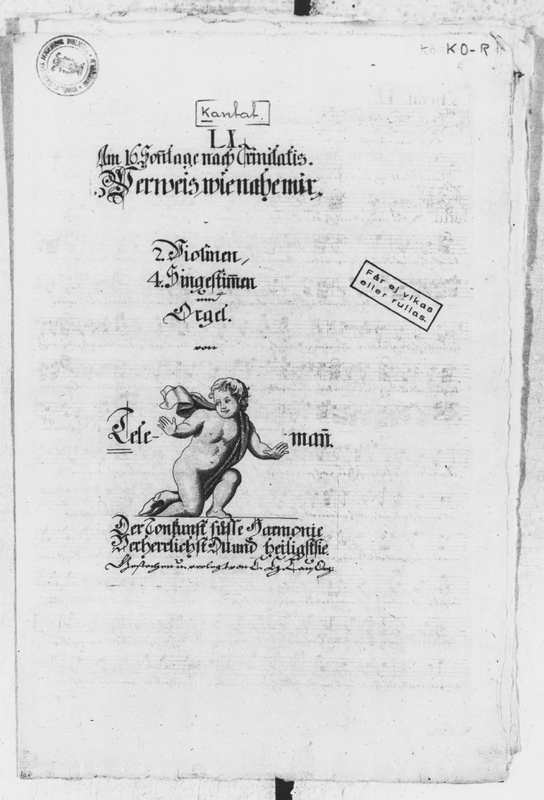 KO-R
Kantat.
LI.
Am 16. Sontage nach Trinitatis.
Wer weis, wie nahe mir,
2. Violinen,
4. Singestim̄en
und
Orgel.
von
Får ej vikas
eller rullas.
Tele- man̄.
Der Tonkunst süsse Harmonie
Verherrlichst Du und heiligst sie.
Gestochen u. verlegt von